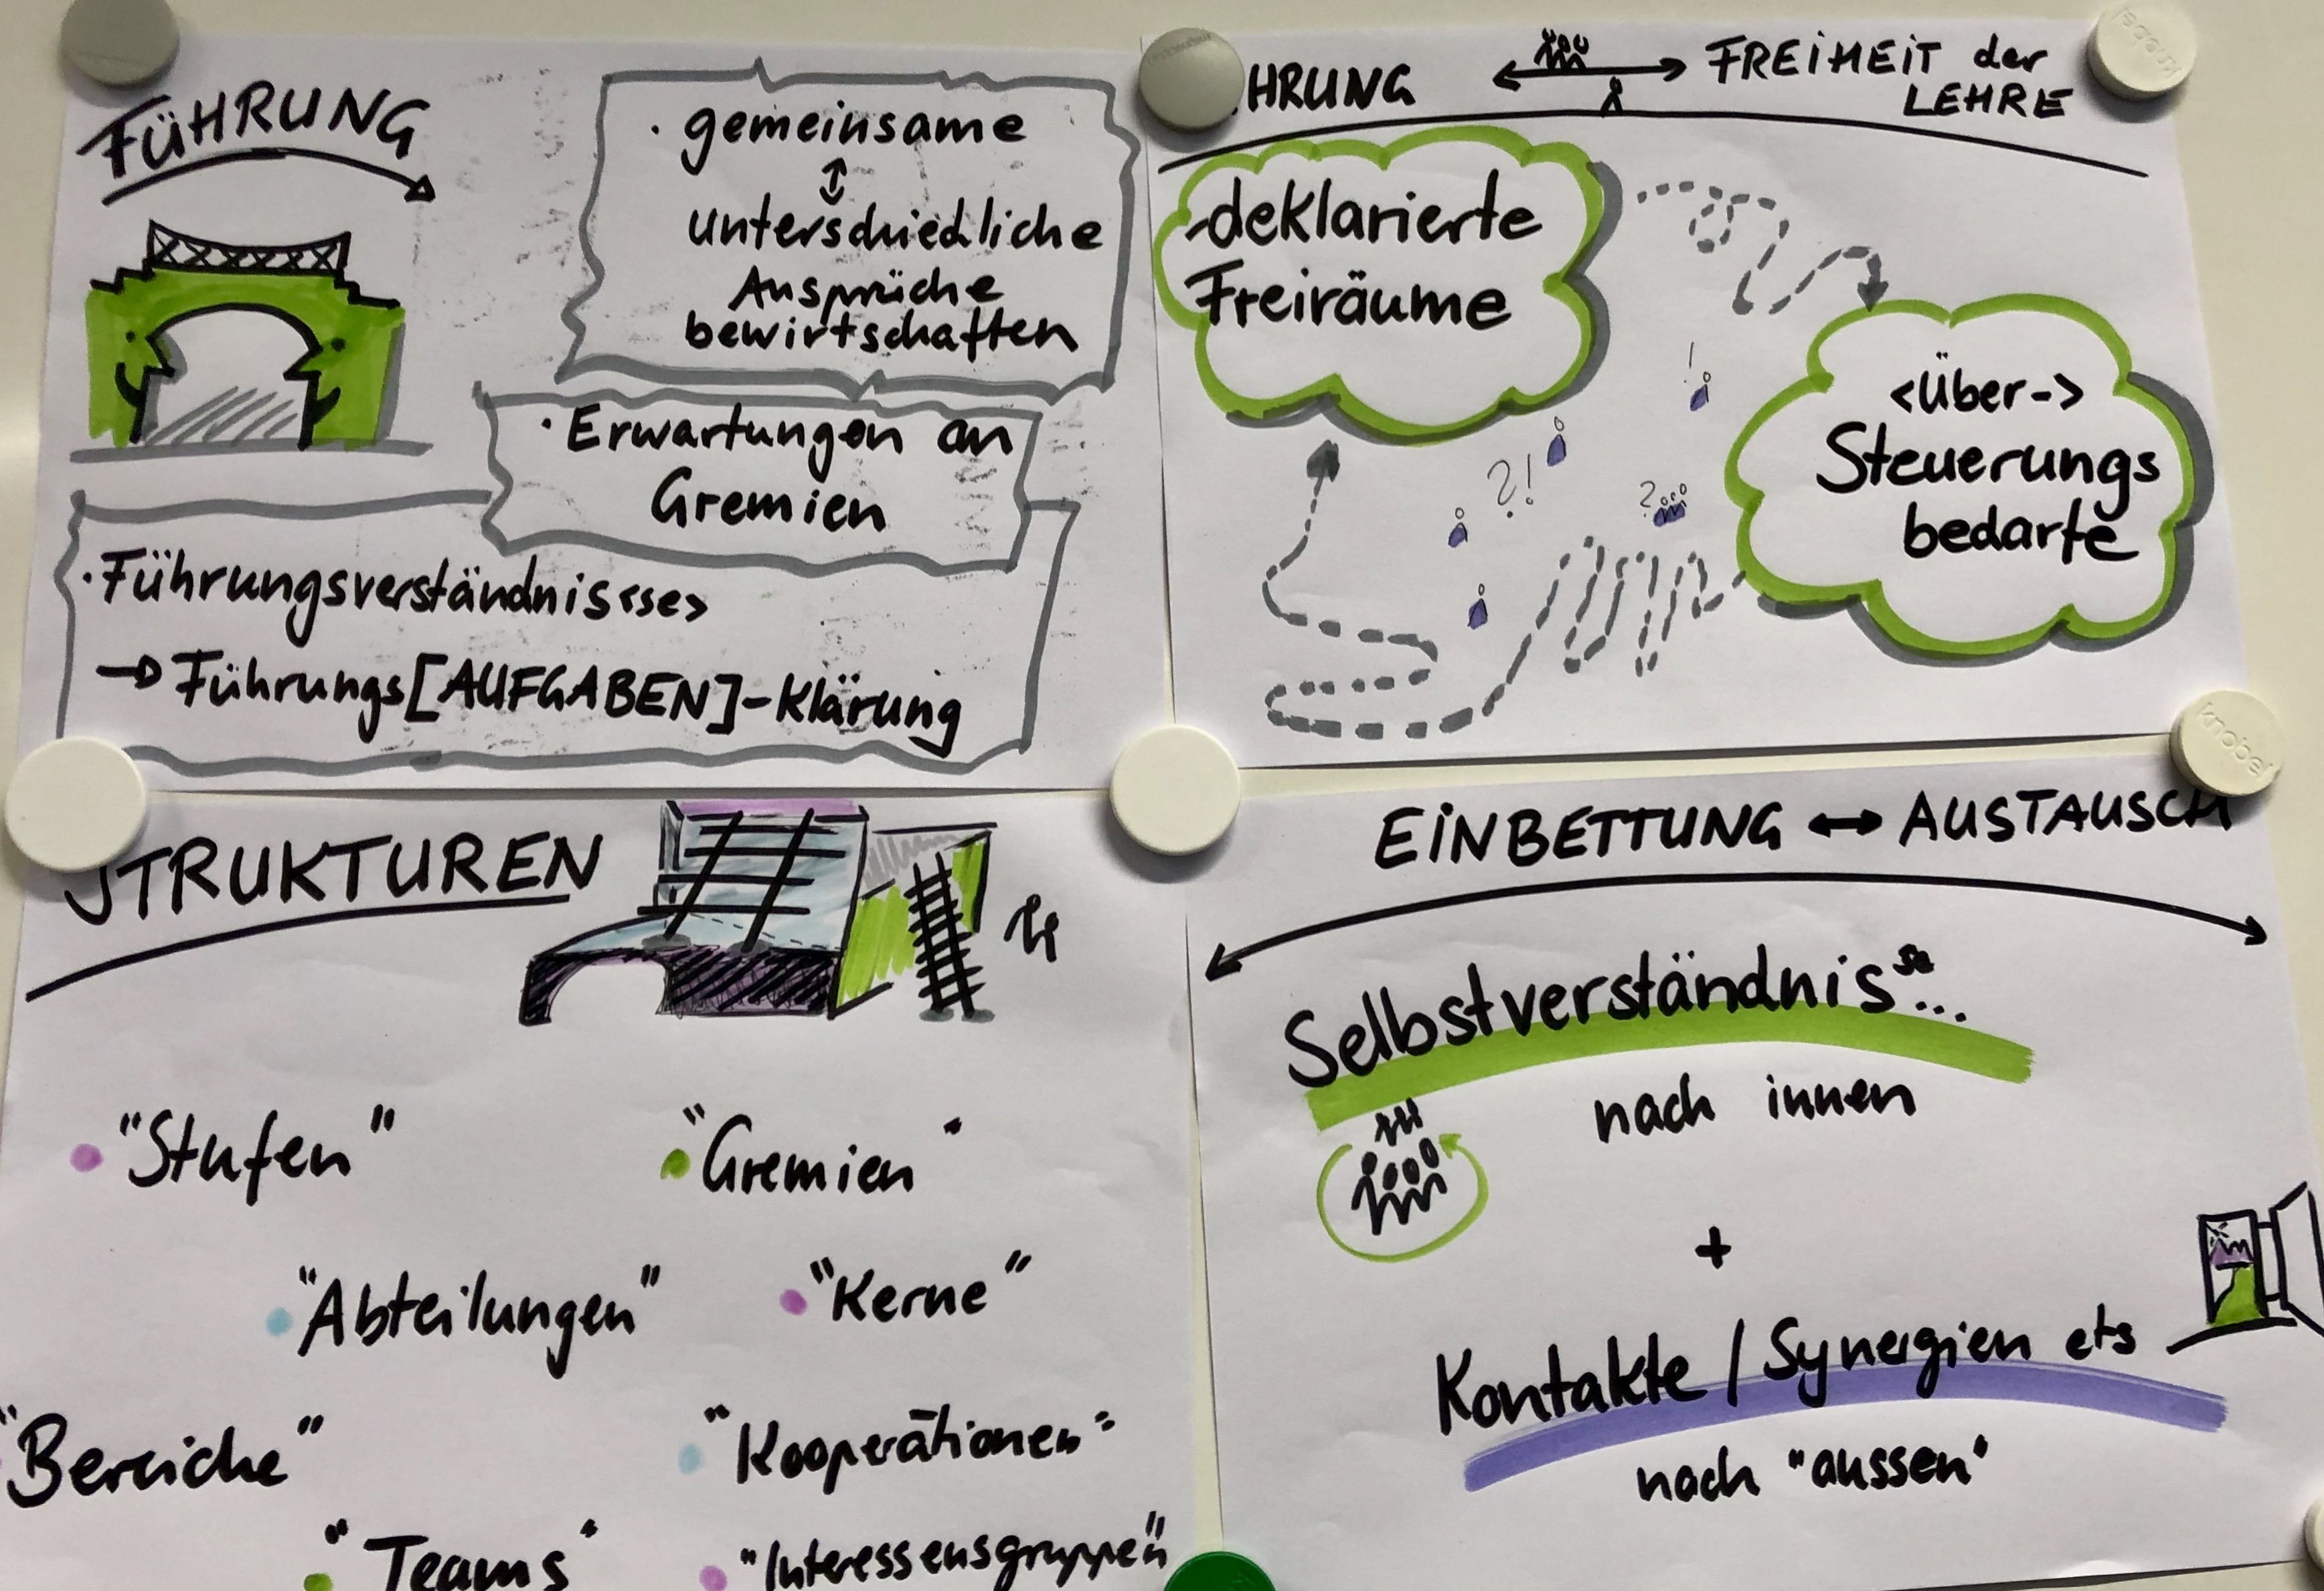 FÜHRUNG
· gemeinsame
↕
unterschiedliche
Ansprüche
bewirtschaften
· Erwartungen an
Gremien
· Führungsverständnis<se>
→ Führungs[AUFGABEN]-Klärung
HRUNG ↔ FREIHEIT der
LEHRE
deklarierte
Freiräume
<Über->
Steuerungs
bedarfe
!
?!
?
STRUKTUREN
"Stufen"
"Gremien"
"Abteilungen"
"Kerne"
"Bereiche"
"Kooperationen"
"Teams"
"Interessensgruppen"
EINBETTUNG ↔ AUSTAUSCH
Selbstverständnis se...
nach innen
+
Kontakte / Synergien ets
nach "aussen"
knobel
knobel